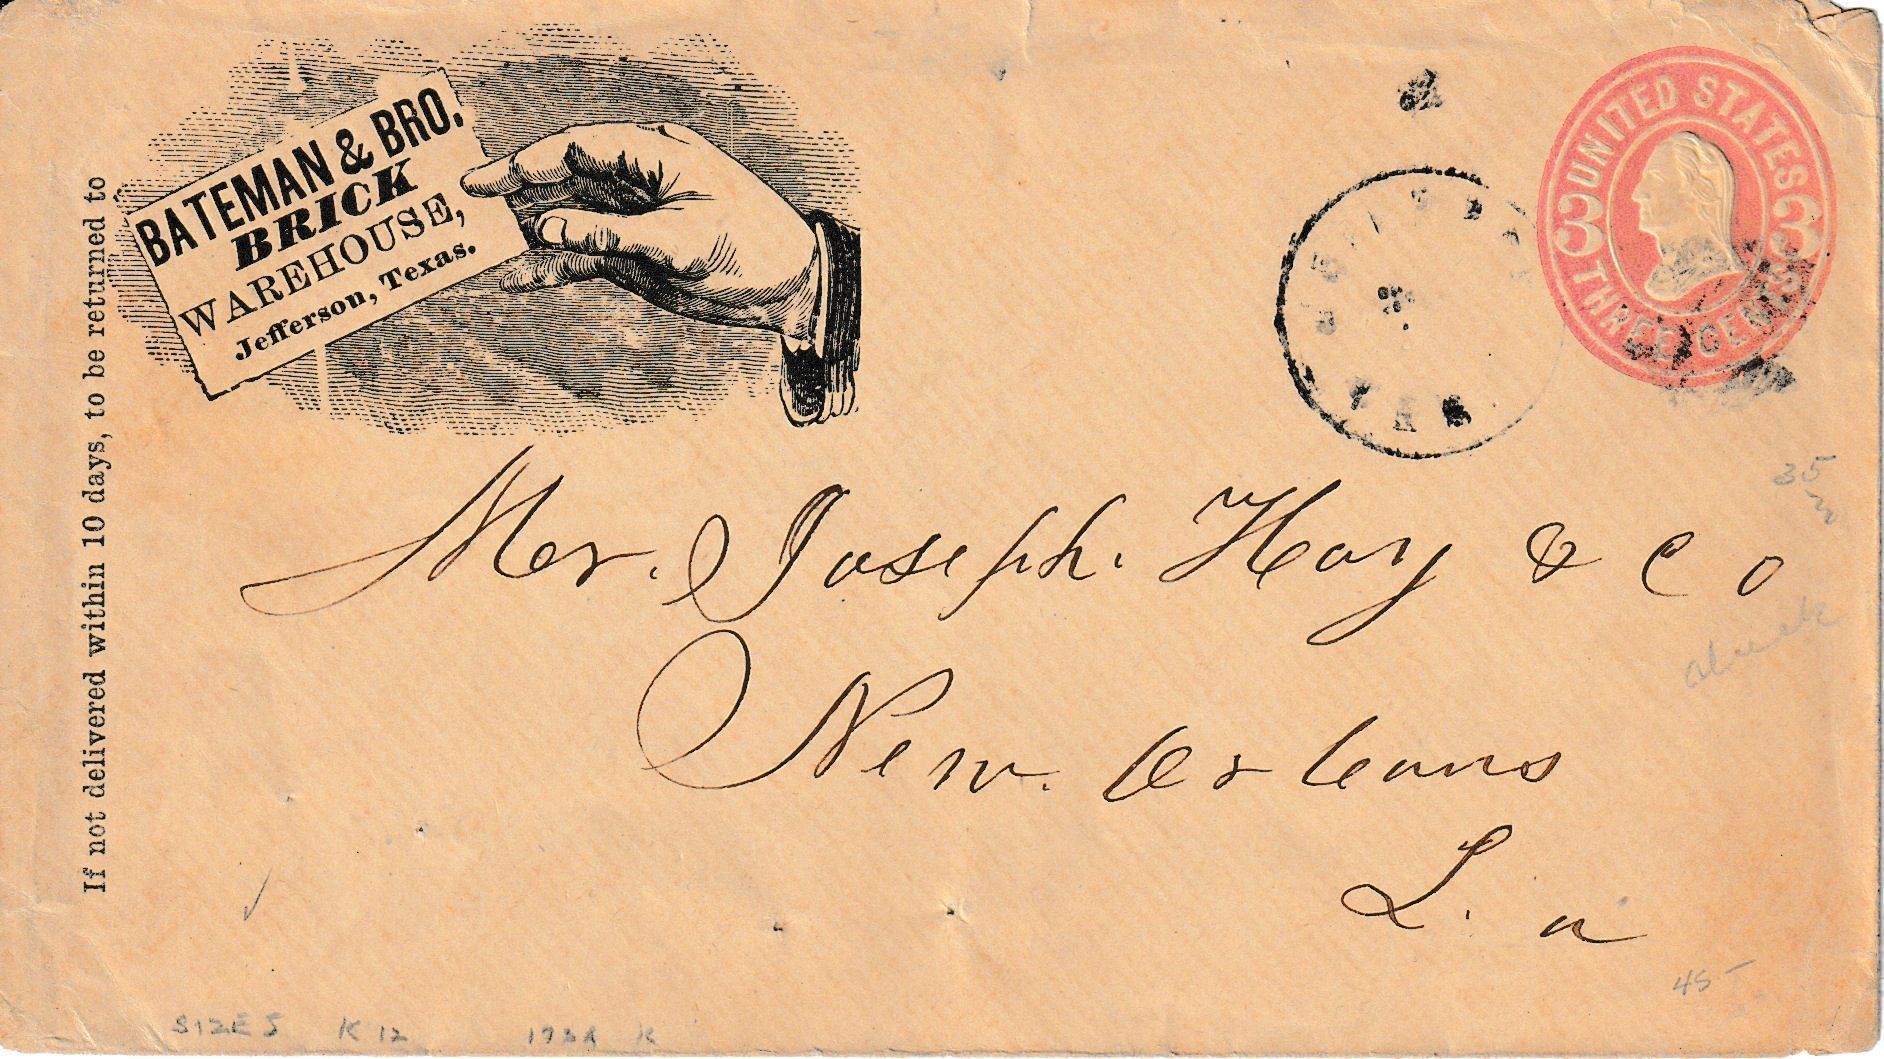 BATEMAN & BRO.
BRICK
WAREHOUSE,
Jefferson, Texas.
If not delivered within 10 days, to be returned to
UNITED STATES
3 3
THREE CENTS
Mr. Joseph. Hoy & Co
New. Orleans
La
35
45-
SIZE 5 K 12
K